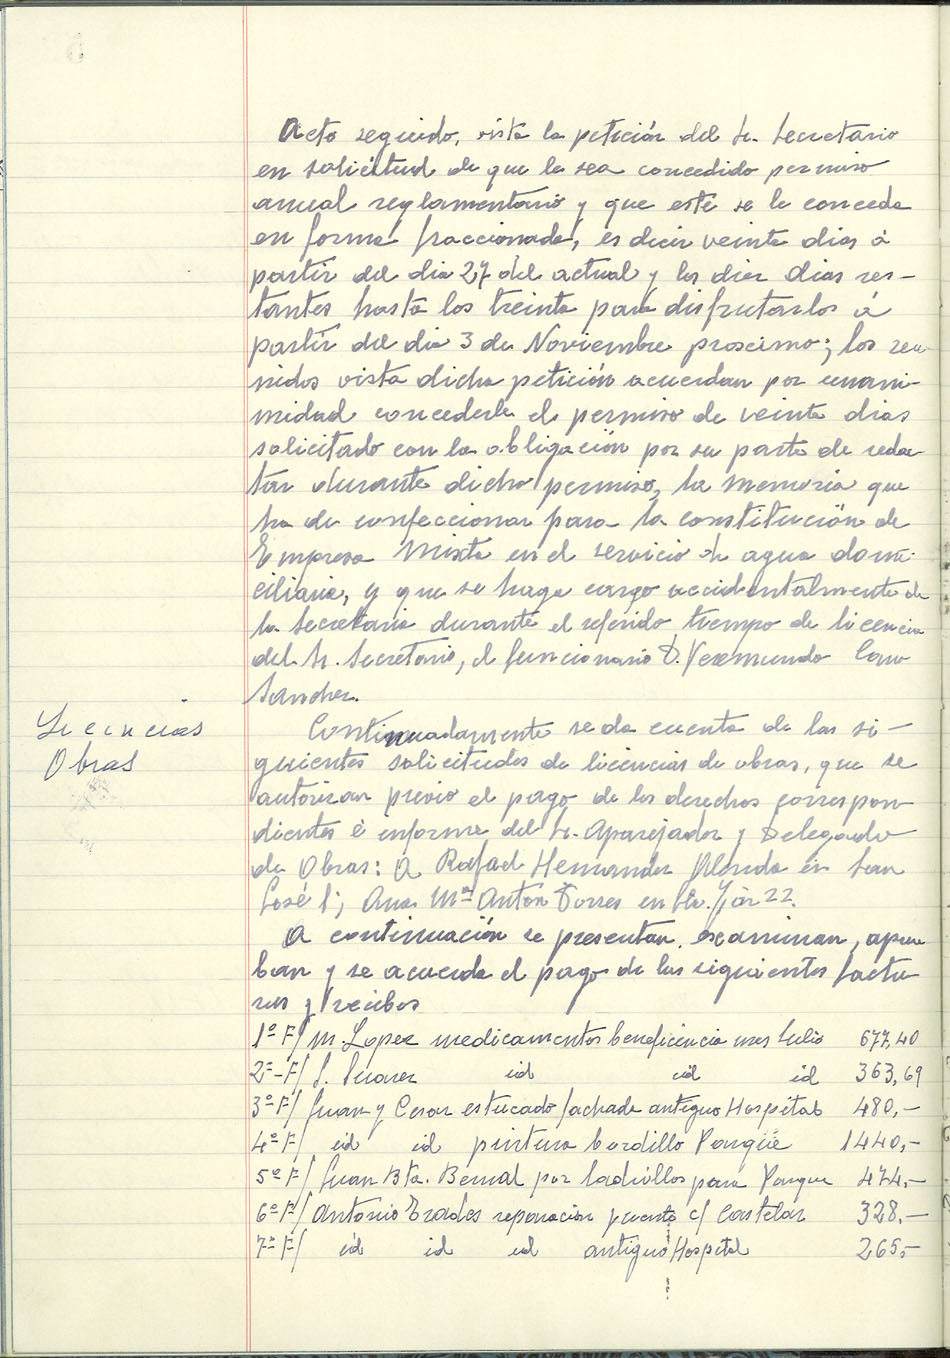 Acto seguido, vista la petición del Sr. Secretario
en solicitud de que le sea concedido permiso
anual reglamentario y que este se le conceda
en forma fraccionada, es decir veinte dias á
partir del dia 27 del actual y los diez dias res-
tantes hasta los treinta para disfrutarlos á
partir del dia 3 de Noviembre proscimo; los reu-
nidos vista dicha petición acuerdan por unani-
midad concederle el permiso de veinte dias
solicitado con la obligación por su parte de redac-
tar durante dicho permiso, la memoria que
ha de confeccionar para la constitución de
Empresa Mixta en el servicio de agua domi-
ciliaria, y que se haga cargo accidentalmente de
la Secretaria durante el referido tiempo de licencia
del Sr. Secretario, el funcionario D. Veremundo
Sanchez.
Licencias
Obras
Continuadamente se da cuenta de las si-
guientes solicitudes de licencias de obras, que se
autorizan previo el pago de los derechos correspon-
dientes é informe del Sr. Aparejador y Delegado
de Obras: A Rafael Hernandez en San
José 1; Ana Mª Anton Torres en 22.
A continuación se presentan, escaminan, aprue
ban y se acuerda el pago de las siguientes factu
ras y recibos
1º F/ M. Lopez medicamentos beneficencia mes Julio 677,40
2º-F/ J. Suarez id id id 363,69
3º F/ Juan y Cesar estucado fachada antiguo Hospital 480,-
4º F/ id id pintura bordillo Parque 1440,-
5º F/ Juan Bta. Bernal por ladrillos para Parque 474,-
6º F/ Antonio reparación puente c/ Castelar 328.-
7º F/ id id id antiguo Hospital 265,-